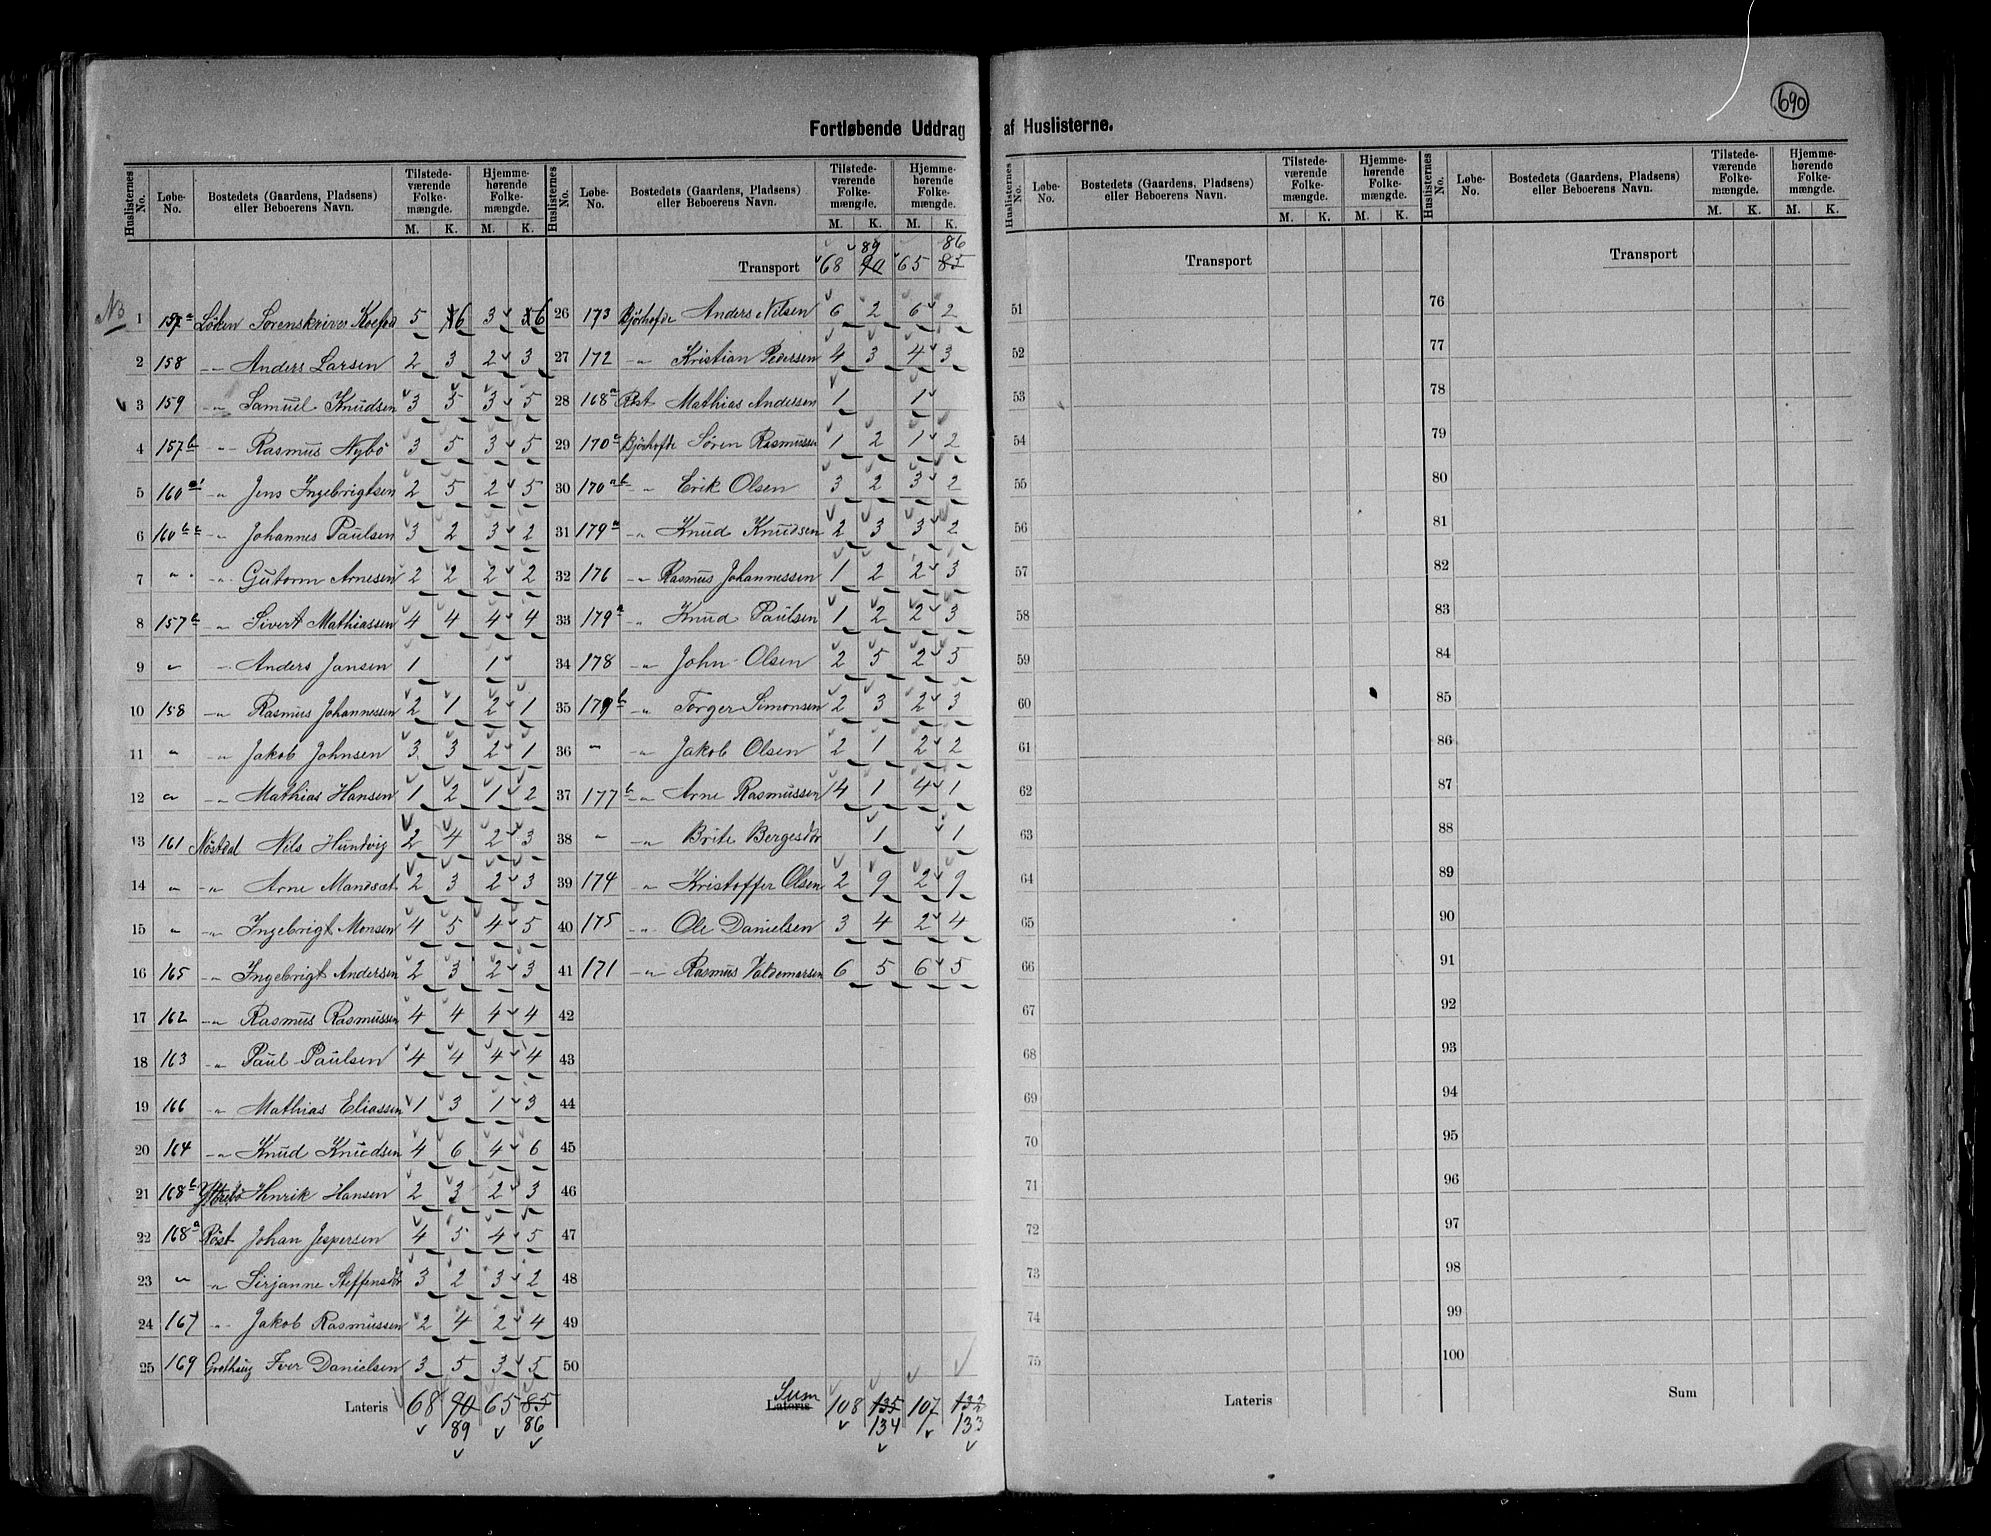 690
Fortløbende Uddrag af Huslisterne.
Huslisternes No. Løbe-No. Bostedets (Gaardens, Pladsens) eller Beboerens Navn. Tilstedeværende Folkemængde. M. K. Hjemmehørende Folkemængde. M. K.
NB 1 157a Løken Sorenskriver Koefod 5 6 3 6
2 158 -"- Anders Larsen 2 3 2 3
3 159 -"- Samuel Knudsen 3 5 3 5
4 157b -"- Rasmus Nybø 3 5 3 5
5 160a1 -"- Jens Ingebrigtsen 2 5 2 5
6 160b -"- Johannes Paulsen 3 2 3 2
7 " -"- Gutorm Arnesen 2 2 2 2
8 157b -"- Sivert Mathiassen 4 4 4 4
9 " -"- Anders Jansen 1 1
10 158 -"- Rasmus Johannessen 2 1 2 1
11 " -"- Jakob Johnsen 3 3 2 1
12 " -"- Mathias Hansen 1 2 1 2
13 161 Nøstdal Nils Hundvig 2 4 2 3
14 " -"- Arne Mandsæt 2 3 2 3
15 " -"- Ingebrigt Monsen 4 5 4 5
16 165 -"- Ingebrigt Andersen 2 3 2 3
17 162 -"- Rasmus Rasmussen 4 4 4 4
18 163 -"- Paul Paulsen 4 4 4 4
19 166 -"- Mathias Eliassen 1 3 1 3
20 164 -"- Knud Knudsen 4 6 4 6
21 168b Yttrebø Henrik Hansen 2 3 2 3
22 168a Røst Johan Jespersen 4 5 4 5
23 " -"- Sirjanne Steffensdtr 3 2 3 2
24 167 -"- Jakob Rasmussen 2 4 2 4
25 169 Iver Danielsen 3 5 3 5
Lateris 68 90 65 85
89 86
Huslisternes No. Løbe-No. Bostedets (Gaardens, Pladsens) eller Beboerens Navn. Tilstedeværende Folkemængde. M. K. Hjemmehørende Folkemængde. M. K.
89 86
Transport 68 90 65 85
26 173 Bjørhofde Anders Nilsen 6 2 6 2
27 172 -"- Kristian Pedersen 4 3 4 3
28 168a Røst Mathias Andersen 1 1
29 170a Bjørhofde Søren Rasmussen 1 2 1 2
30 170ab -"- Erik Olsen 3 2 3 2
31 179a -"- Knud Knudsen 2 3 3 2
32 176 -"- Rasmus Johannessen 1 2 2 3
33 179a -"- Knud Paulsen 1 2 2 3
34 178 -"- John Olsen 2 5 2 5
35 179b -"- Torger Simonsen 2 3 2 3
36 " -"- Jakob Olsen 2 1 2 2
37 177b -"- Arne Rasmussen 4 1 4 1
38 " -"- Brite Bergesdtr 1 1
39 174 -"- Kristoffer Olsen 2 9 2 9
40 175 -"- Ole Danielsen 3 4 2 4
41 171 -"- Rasmus Valdemarsen 6 5 6 5
42
43
44
45
46
47
48
49
50
Sum
Lateris 108 135 107 132
134 133
Huslisternes No. Løbe-No. Bostedets (Gaardens, Pladsens) eller Beboerens Navn. Tilstedeværende Folkemængde. M. K. Hjemmehørende Folkemængde. M. K.
Transport
51
52
53
54
55
56
57
58
59
60
61
62
63
64
65
66
67
68
69
70
71
72
73
74
75
Lateris
Huslisternes No. Løbe-No. Bostedets (Gaardens, Pladsens) eller Beboerens Navn. Tilstedeværende Folkemængde. M. K. Hjemmehørende Folkemængde. M. K.
Transport
76
77
78
79
80
81
82
83
84
85
86
87
88
89
90
91
92
93
94
95
96
97
98
99
100
Sum